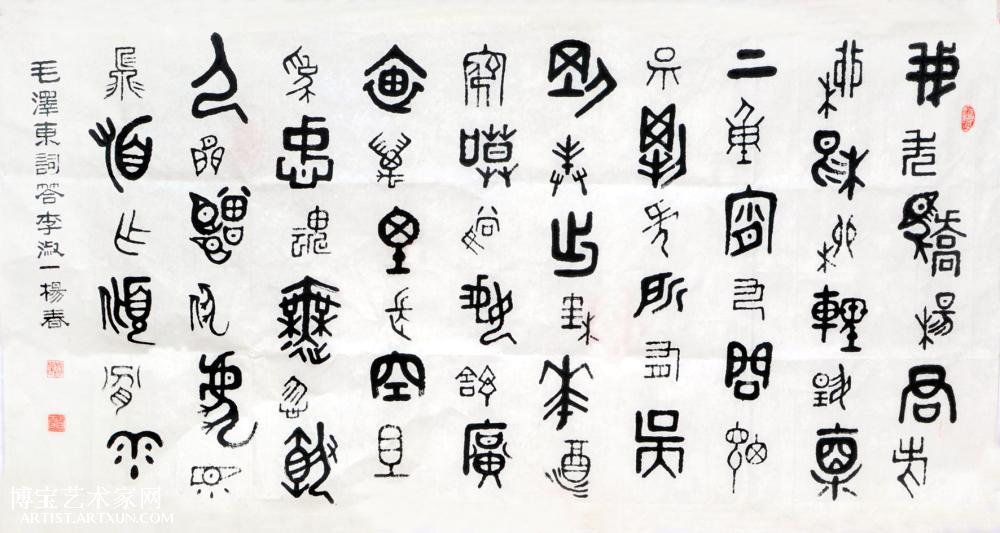 我失驕楊君失
柳楊柳輕颺直
上重霄九問訊
吳剛何所有吳
剛捧出桂花酒
寂寞嫦娥舒廣
袖萬里長空且
為忠魂舞忽報
人間曾伏虎淚
飛頓作傾盆雨
毛澤東詞答李淑一楊春
博宝艺术家网
ARTIST.ARTXUN.COM